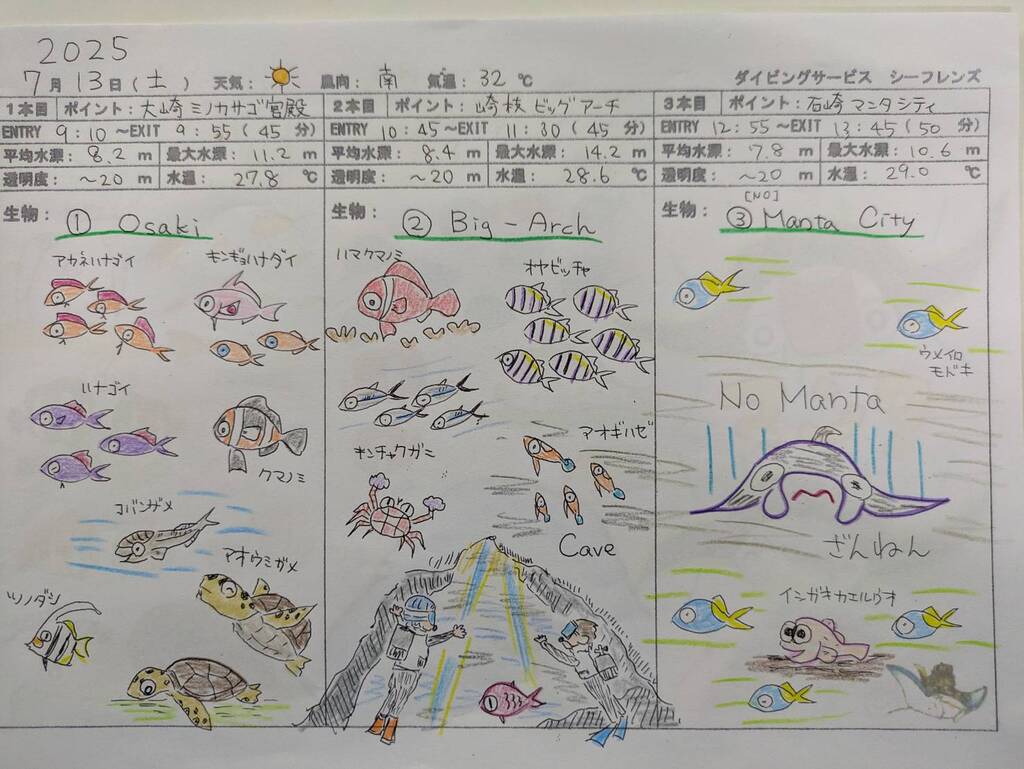 2025
7月13日(土) 天気: 風向:南 気温:32℃ ダイビングサービス シーフレンズ
1本目 ポイント:大崎ミノカサゴ宮殿
ENTRY 9:10 ~EXIT 9:55 (45分)
平均水深:8.2m 最大水深:11.2m
透明度:~20m 水温:27.8℃
生物: ① Osaki
アカネハナゴイ キンギョハナダイ
ハナゴイ
クマノミ
コバンザメ
アオウミガメ
ツノダシ
2本目 ポイント:崎枝ビッグアーチ
ENTRY 10:45 ~EXIT 11:30 (45分)
平均水深:8.4m 最大水深:14.2m
透明度:~20m 水温:28.6℃
生物: ② Big-Arch
ハマクマノミ オヤビッチャ
キンチャクガニ アオギハゼ
Cave
3本目 ポイント:石崎マンタシティ
ENTRY 12:55 ~EXIT 13:45 (50分)
平均水深:7.8m 最大水深:10.6m
透明度:~20m 水温:29.0℃
[NO]
生物: ③ Manta City
ウメイロ
モドキ
No Manta
ざんねん
イシガキカエルウオ